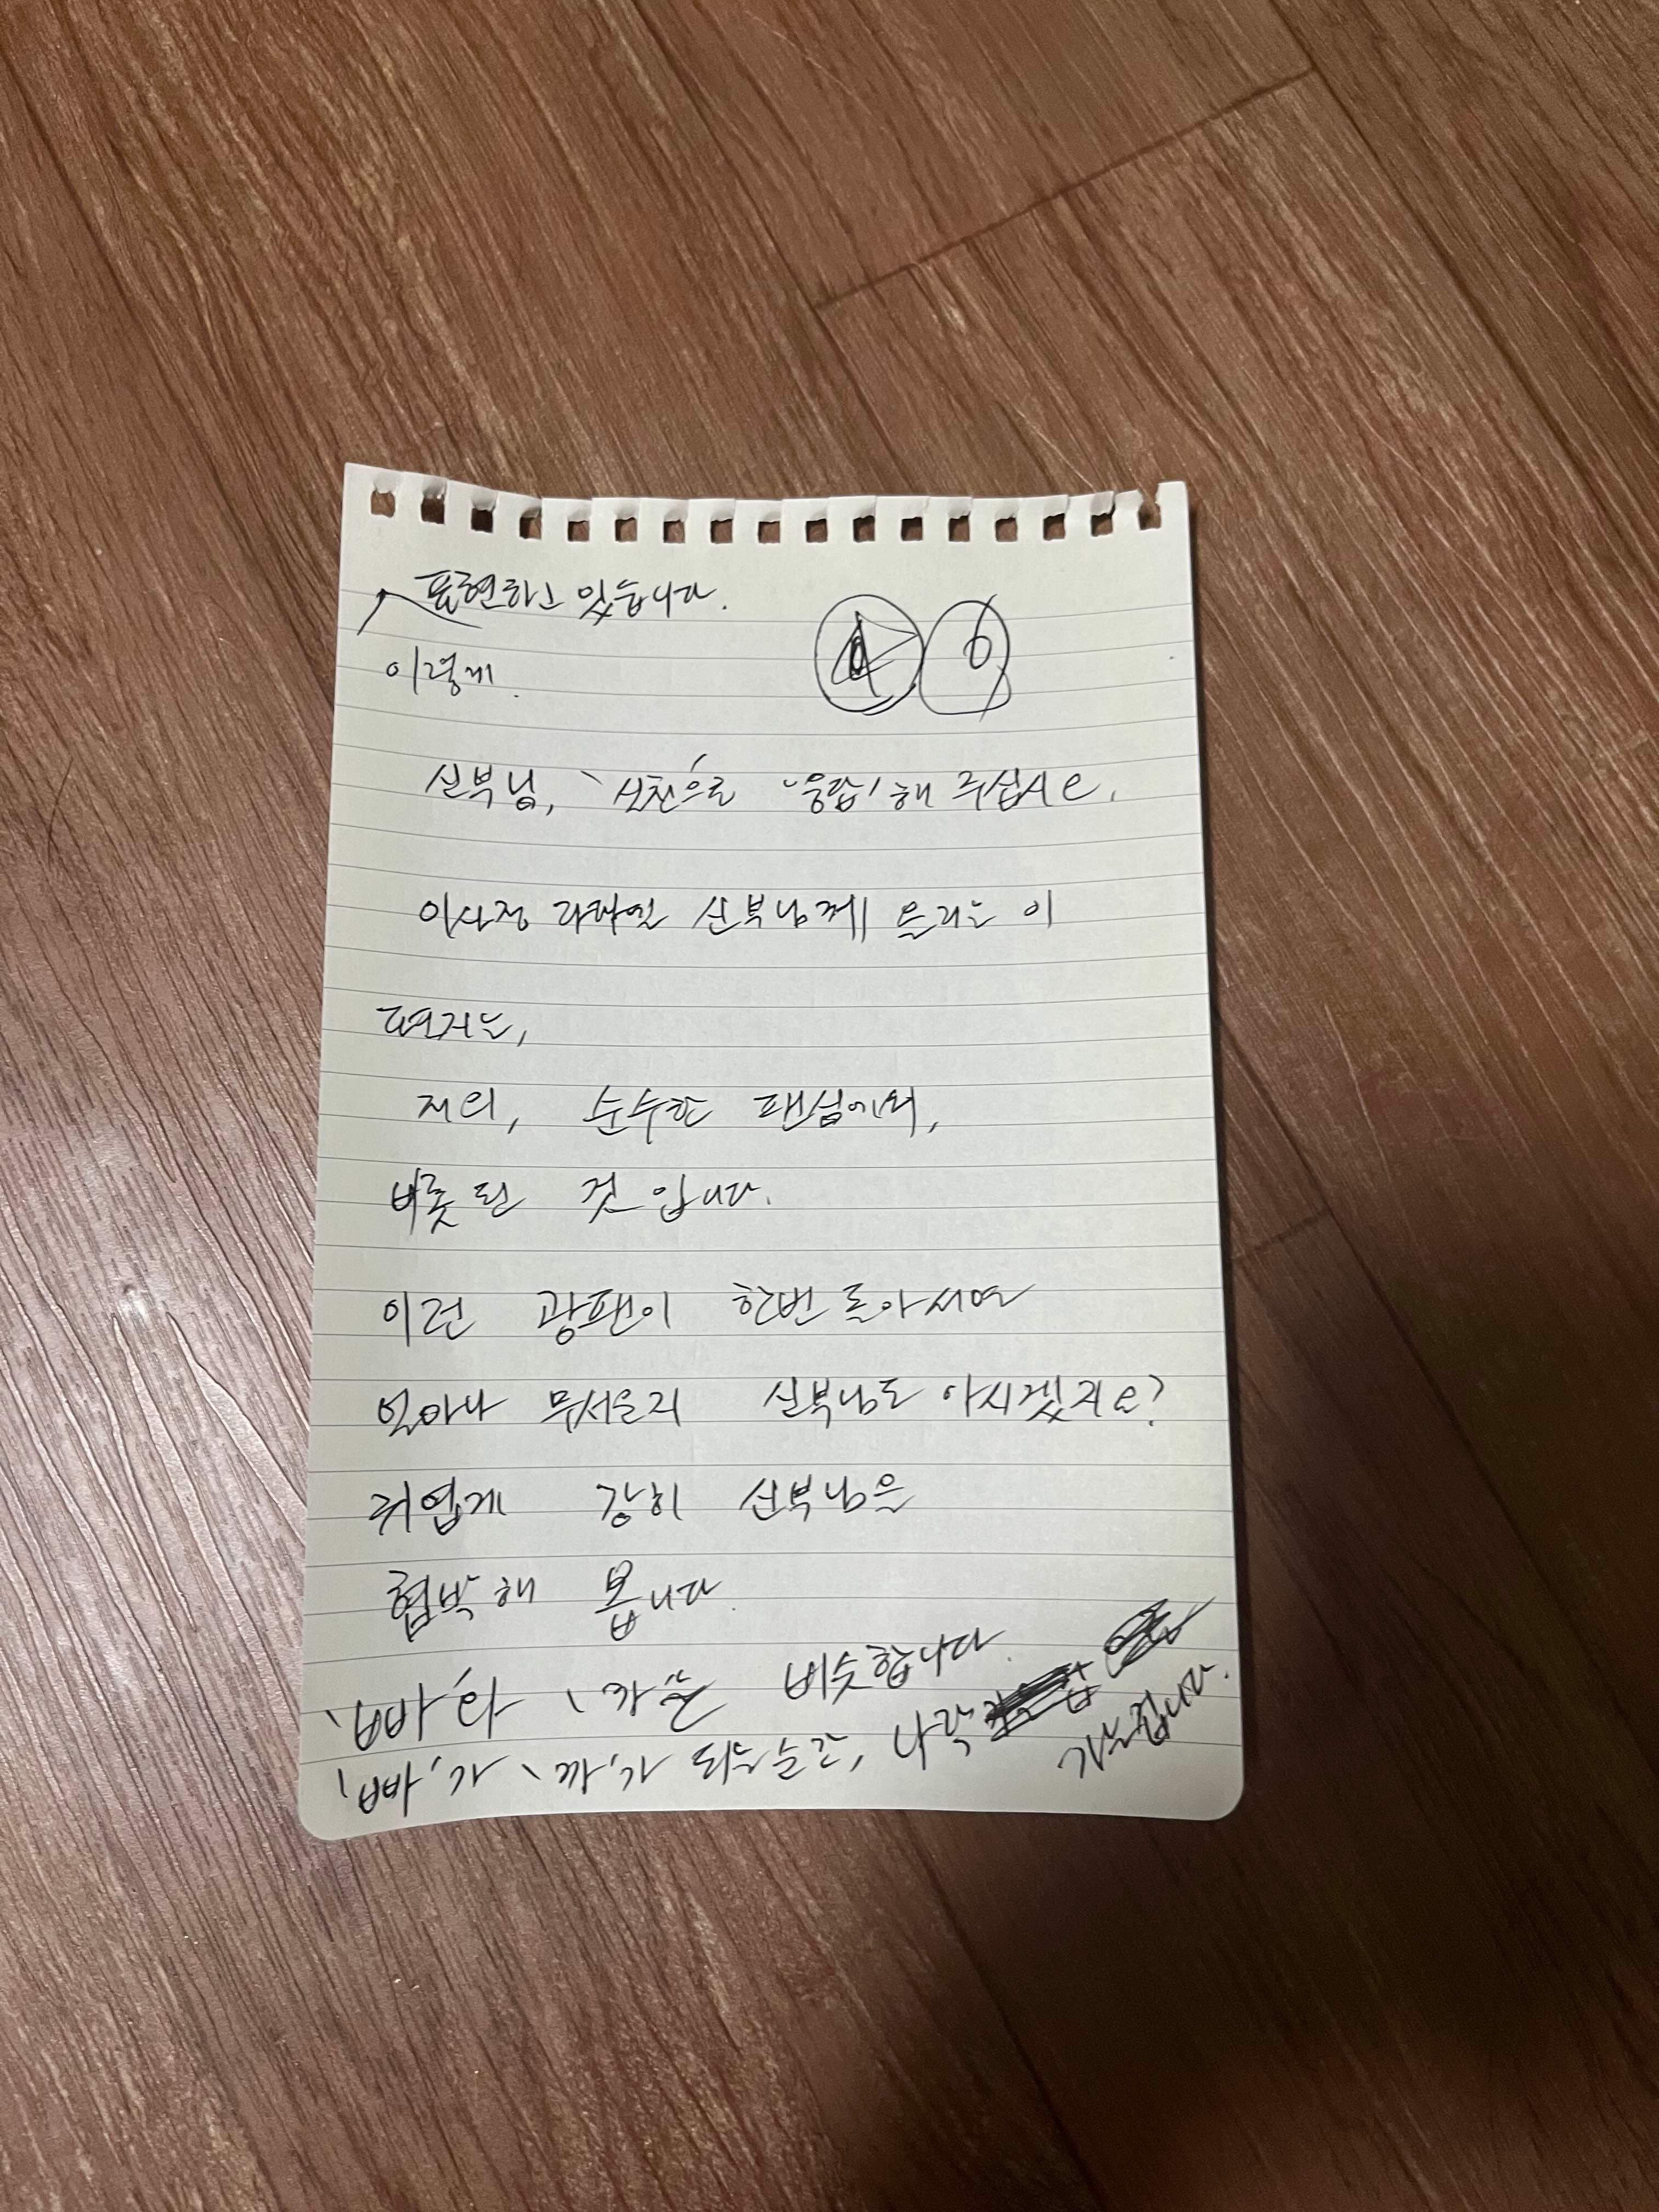 표현하고 있습니다.
이렇게.
신부님, '실천으로' '응답'해 주십시오.
이사정 라파엘 신부님께 올리는 이
편지는,
저의, 순수한 팬심에서,
비롯된 것입니다.
이런 광팬이 한번 돌아서면
얼마나 무서운지 신부님도 아시겠지요?
귀엽게 강히 신부님을
협박해 봅니다.
'빠'와 '까'는 비슷합니다.
'빠'가 '까'가 되는 순간, 나락
가는 겁니다.